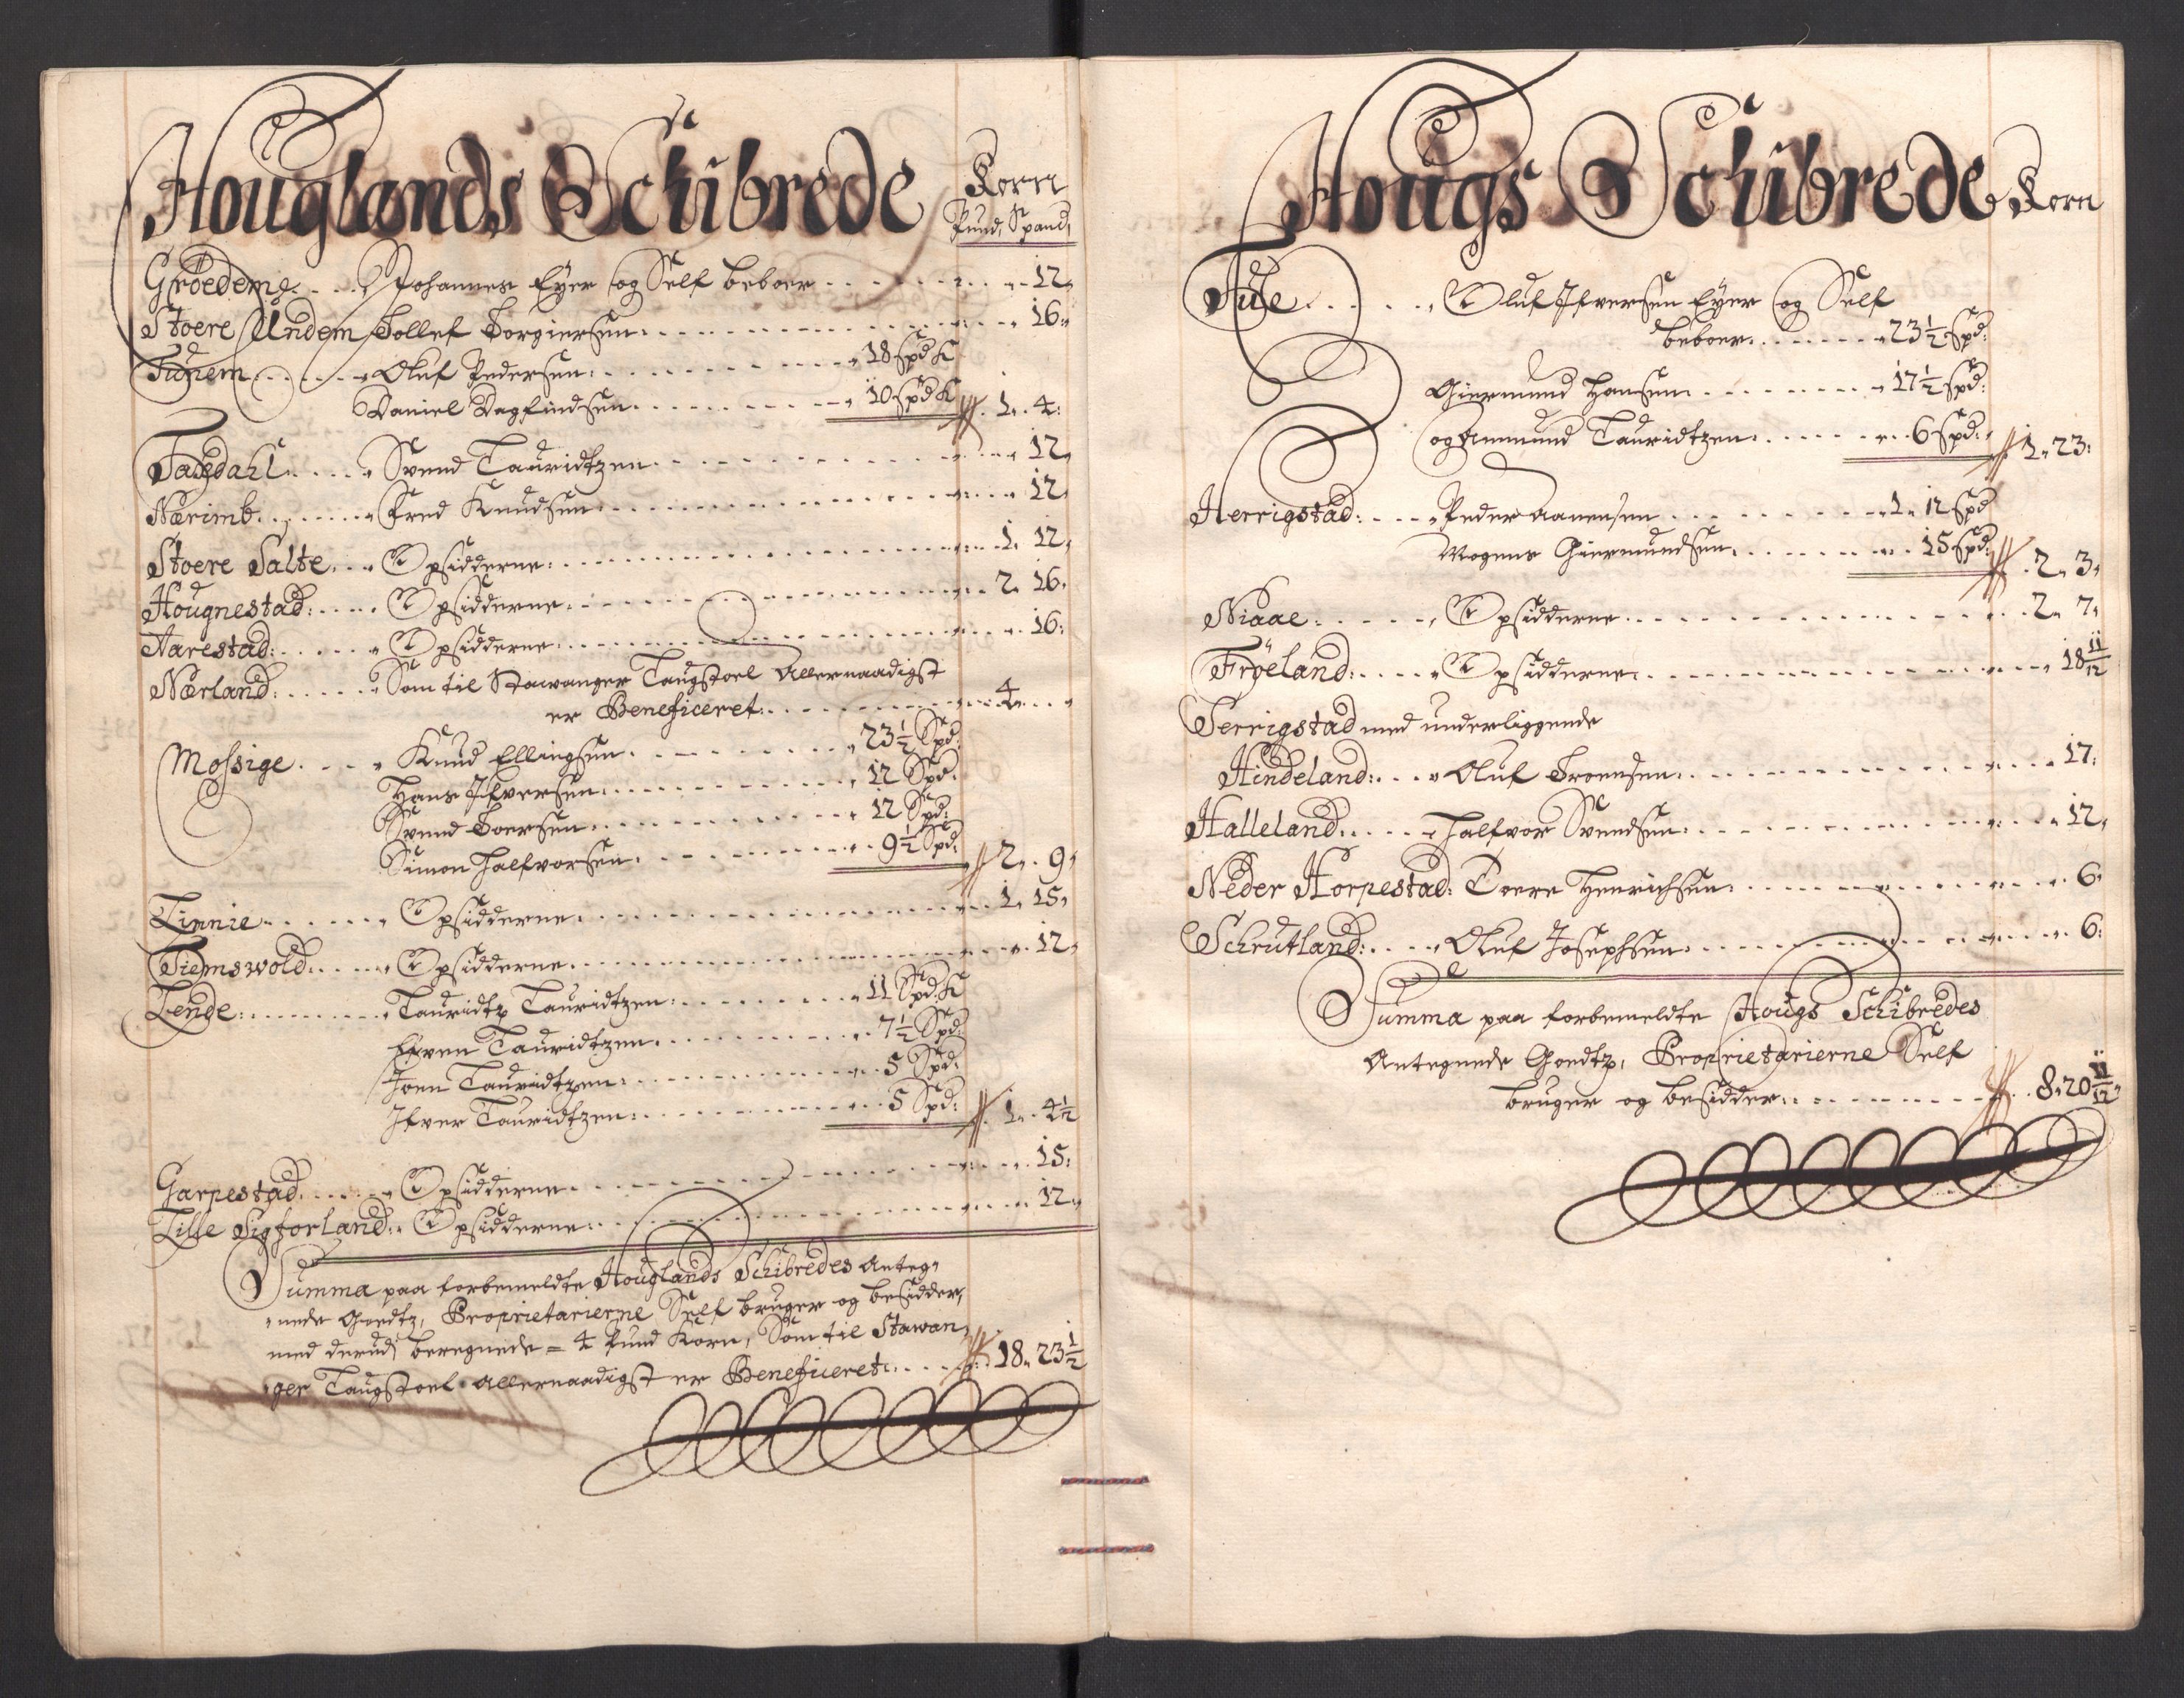 Houglands Schibrede
Korn
Pund, Spand,
Gröedem . . . Johannes Eÿer og Self beboer . . . . . . 12,
Stoere Undem Tollef Torgiersøn: . . . . . . 16:
Tunem . . . . . Oluf Pedersøn: . . . . . . 18 Spd K
Daniel Dagfindsøn . . . . . . 10 Spd K /// 1. 4:
. . . . Svend Lauridtzen . . . . . . 12,
Nærimb. . . . . . Fred Knudsøn . . . . . . 12,
Stoere Salte. . . Opsidderne: . . . . . . 1. 12,
Hougnestad: . . . . Opsidderne: . . . . . . 2. 16.
Aarestad: . . . . . Opsidderne: . . . . . . 16:
Nærland: . . . . . Som til Stawanger Laugstoel Allernaadigst
er Beneficeret: . . . . . . 4. . .
Mossige. . . . Knud Ellingsøn . . . . . . 23½ Spd:
Hans Ifversøn: . . . . . . 12 Spd:
Svend Toersøn: . . . . . . 12 Spd:
Simon Halfvorsøn . . . . . . 9½ Spd: // 2. 9,
Linnie . . . . . Opsidderne: . . . . . . 1. 15,
Tiemswold: . . . . Opsidderne . . . . . . 12,
Lende: . . . . . Lauridtz Lauridtzen: . . . . . . 11 Spd: K
Sven Lauridtzen . . . . . . 7½ Spd:
Joen Lauridtzen: . . . . . . 5 Spd:
Ifver Lauridtzen: . . . . . . 5 Spd: // 1. 4½
Garpestad. . . . . Opsidderne . . . . . . 15:
Lille Sigforland: . Opsidderne: . . . . . . 12,
Summa paa forbemeldte Houglands Schibredes Anteg-
nede Goedtz, Proprietarierne Self bruger og besidder,
med derudj beregnede = 4 Pund Korn, Som til Stawan,
ger Laugstoel Allernaadigst er Beneficeret: . . . . . 18. 23½
Hougs Schibrede
Korn
Aule . . . . . Oluf Ifversøn Eÿer og Self
beboer . . . . . . 23½ Spd:
Giermund Hansøn . . . . . . 17½ Spd:
og Ammund Lauridtzen . . . . . . 6 Spd: // 1. 23:
Herrigstad: . . . . Peder Aanensøn . . . . . . 1. 12 Spd
Mogens Giermundsøn . . . . . . 15 Spd: // 2. 3,
Niaae . . . . . Opsidderne . . . . . . 2. 7,
Fröeland: . . . . Opsidderne . . . . . . 18 11/12
Serrigstad med underliggende
Hindeland: . . . Oluf Troensøn . . . . . . 17:
Halleland . . . . Halfvor Svendsøn: . . . . . . 12,
Neder Horpestad: Toere Henrichsøn: . . . . . . 6:
Schrutland: . . . . Oluf Josephsøn . . . . . . 6:
Summa paa forbemeldte Hougs Schibredes
Antegnede Goedtz, Proprietarierne Self
bruger og besidder: . . . . . . 8. 20 11/12